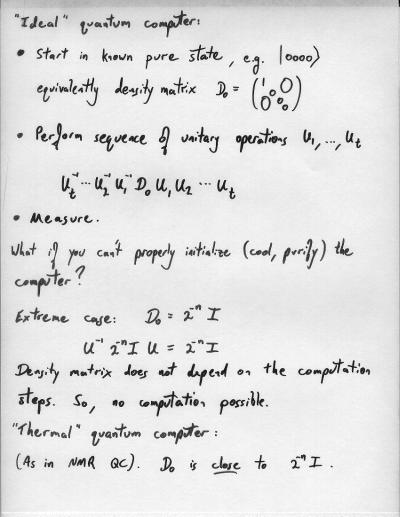 "Ideal" quantum computer:
• Start in known pure state, e.g. |0000⟩
equivalently density matrix D₀ = (1 0 0 0 0 0)
• Perform sequence of unitary operations U₁, ..., Uₜ
Uₜ⁻¹ ... U₂⁻¹ U₁⁻¹ D₀ U₁ U₂ ... Uₜ
• Measure.
What if you can't properly initialize (cool, purify) the
computer?
Extreme case: D₀ = 2⁻ⁿ I
U⁻¹ 2⁻ⁿ I U = 2⁻ⁿ I
Density matrix does not depend on the computation
steps. So, no computation possible.
"Thermal" quantum computer:
(As in NMR QC). D₀ is close to 2⁻ⁿ I.